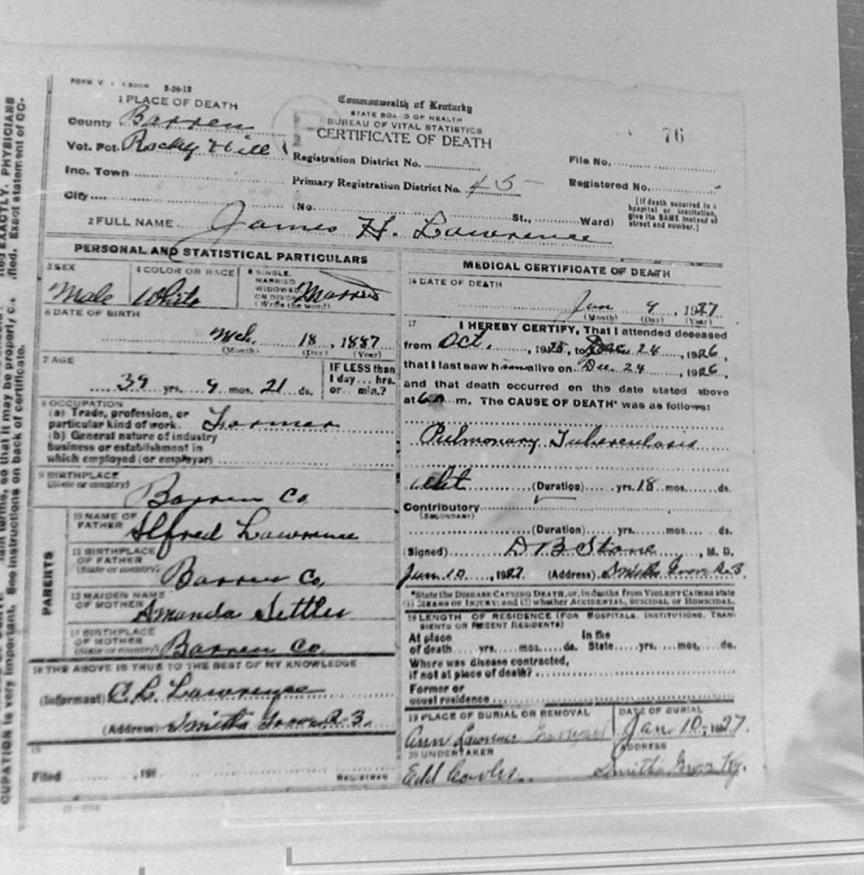 1 PLACE OF DEATH
County Barren
Vot. Pct. Rocky Hill
Inc. Town
City
Commonwealth of Kentucky
STATE BOARD OF HEALTH
BUREAU OF VITAL STATISTICS
CERTIFICATE OF DEATH
76
Registration District No.
File No.
Primary Registration District No. 45
Registered No.
(No. St., Ward)
[If death occurred in a
hospital or institution,
give its NAME instead of
street and number.]
2 FULL NAME James H. Lawrence
PERSONAL AND STATISTICAL PARTICULARS
3 SEX
Male
4 COLOR OR RACE
White
5 SINGLE,
MARRIED
WIDOWED,
OR DIVORCED
(Write the word)
Married
6 DATE OF BIRTH
Mch. 18, 1887
(Month) (Day) (Year)
7 AGE
39 yrs. 9 mos. 21 ds.
IF LESS than
1 day... hrs.
or... min.?
8 OCCUPATION
(a) Trade, profession, or
particular kind of work. Farmer
(b) General nature of industry
business or establishment in
which employed (or employer)
9 BIRTHPLACE
(State or country)
Barren Co.
PARENTS
10 NAME OF
FATHER
Alfred Lawrence
11 BIRTHPLACE
OF FATHER
(State or country)
Barren Co.
12 MAIDEN NAME
OF MOTHER
Amanda Settles
13 BIRTHPLACE
OF MOTHER
(State or country)
Barren Co.
14 THE ABOVE IS TRUE TO THE BEST OF MY KNOWLEDGE
(Informant) C. L. Lawrence
(Address) Smiths Grove R-3.
15
Filed , 191
REGISTRAR
MEDICAL CERTIFICATE OF DEATH
16 DATE OF DEATH
Jan 9, 1927
(Month) (Day) (Year)
17 I HEREBY CERTIFY, That I attended deceased
from Oct. , 1925, to Dec. 24, 1926,
that I last saw him alive on Dec. 24, 1926,
and that death occurred on the date stated above
at m. The CAUSE OF DEATH* was as follows:
Pulmonary Tuberculosis
(Duration) yrs. 18 mos. ds.
Contributory
(SECONDARY)
(Duration) yrs. mos. ds.
(Signed) D B Stone, M. D.
Jan 10, 1927 (Address) Smiths Grove R-3
*State the DISEASE CAUSING DEATH, or, in deaths from VIOLENT CAUSES state
(1) MEANS OF INJURY; and (2) whether ACCIDENTAL, SUICIDAL OR HOMICIDAL.
18 LENGTH OF RESIDENCE (FOR HOSPITALS, INSTITUTIONS, TRANSIENTS OR RECENT RESIDENTS)
At place
of death yrs. mos. ds.
In the
State yrs. mos. ds.
Where was disease contracted,
if not at place of death?
Former or
usual residence
19 PLACE OF BURIAL OR REMOVAL
Ann Lawrence
DATE OF BURIAL
Jan 10, 1927
20 UNDERTAKER
Edd Cowles
ADDRESS
Smiths Grove Ky.